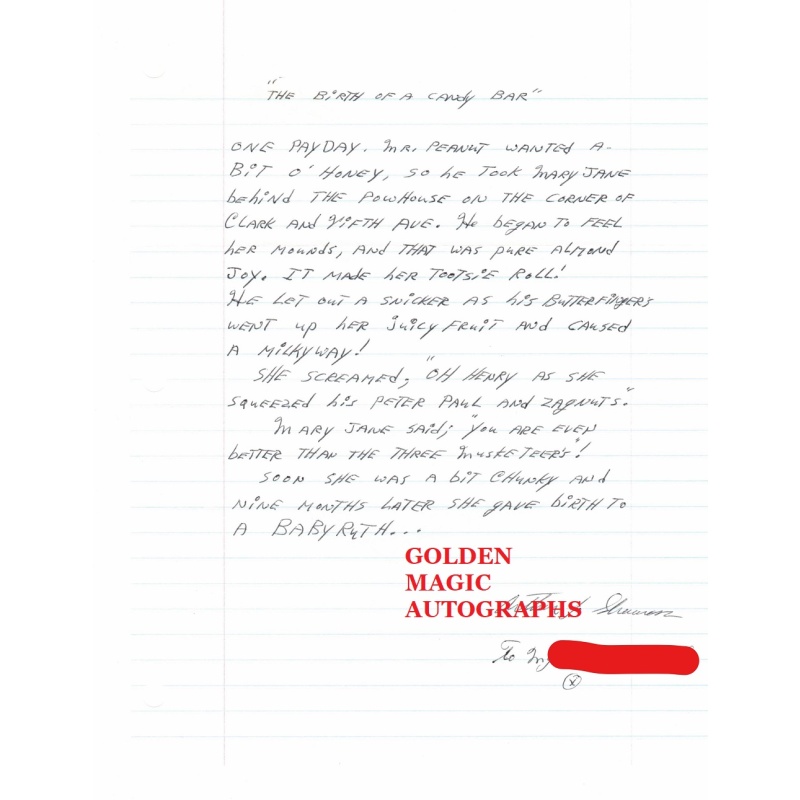 "THE BIRTH OF A CANDY BAR"
ONE PAYDAY. MR. PEANUT WANTED A-
BIT O' HONEY, SO HE TOOK MARY JANE
behind THE POWHOUSE ON THE CORNER OF
CLARK AND FIFTH AVE. He began TO FEEL
her MOUNDS, AND THAT WAS PURE ALMOND
JOY. IT MADE her TOOTSIE ROLL!
HE LET OUT A SNICKER AS his BUTTERFINGERS
WENT up HER JUICY FRUIT AND CAUSED
A MILKYWAY!
SHE SCREAMED; "OH HENRY AS SHE
SQUEEZED his PETER PAUL AND ZAGNUTS."
MARY JANE SAID; "YOU ARE EVEN
BETTER THAN THE THREE MUSKETEER'S"!
SOON SHE WAS A bIT CHUNKY AND
NINE MONTHS LATER SHE gAVE bIRTH TO
A BABY RUTH...
GOLDEN
MAGIC
AUTOGRAPHS
To My
X